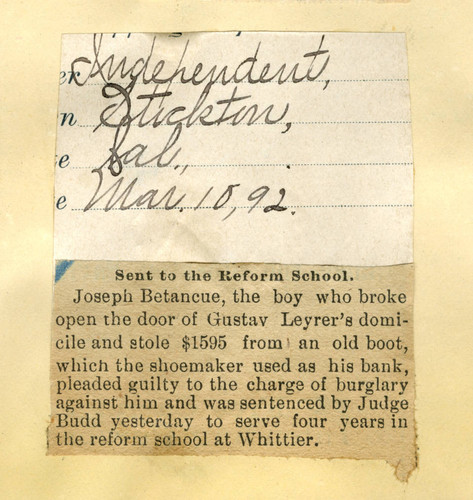 er Independent,
n Stockton,
e Cal.,
e Mar. 10, 92.
Sent to the Reform School.
Joseph Betancue, the boy who broke
open the door of Gustav Leyrer's domi-
cile and stole $1595 from an old boot,
which the shoemaker used as his bank,
pleaded guilty to the charge of burglary
against him and was sentenced by Judge
Budd yesterday to serve four years in
the reform school at Whittier.